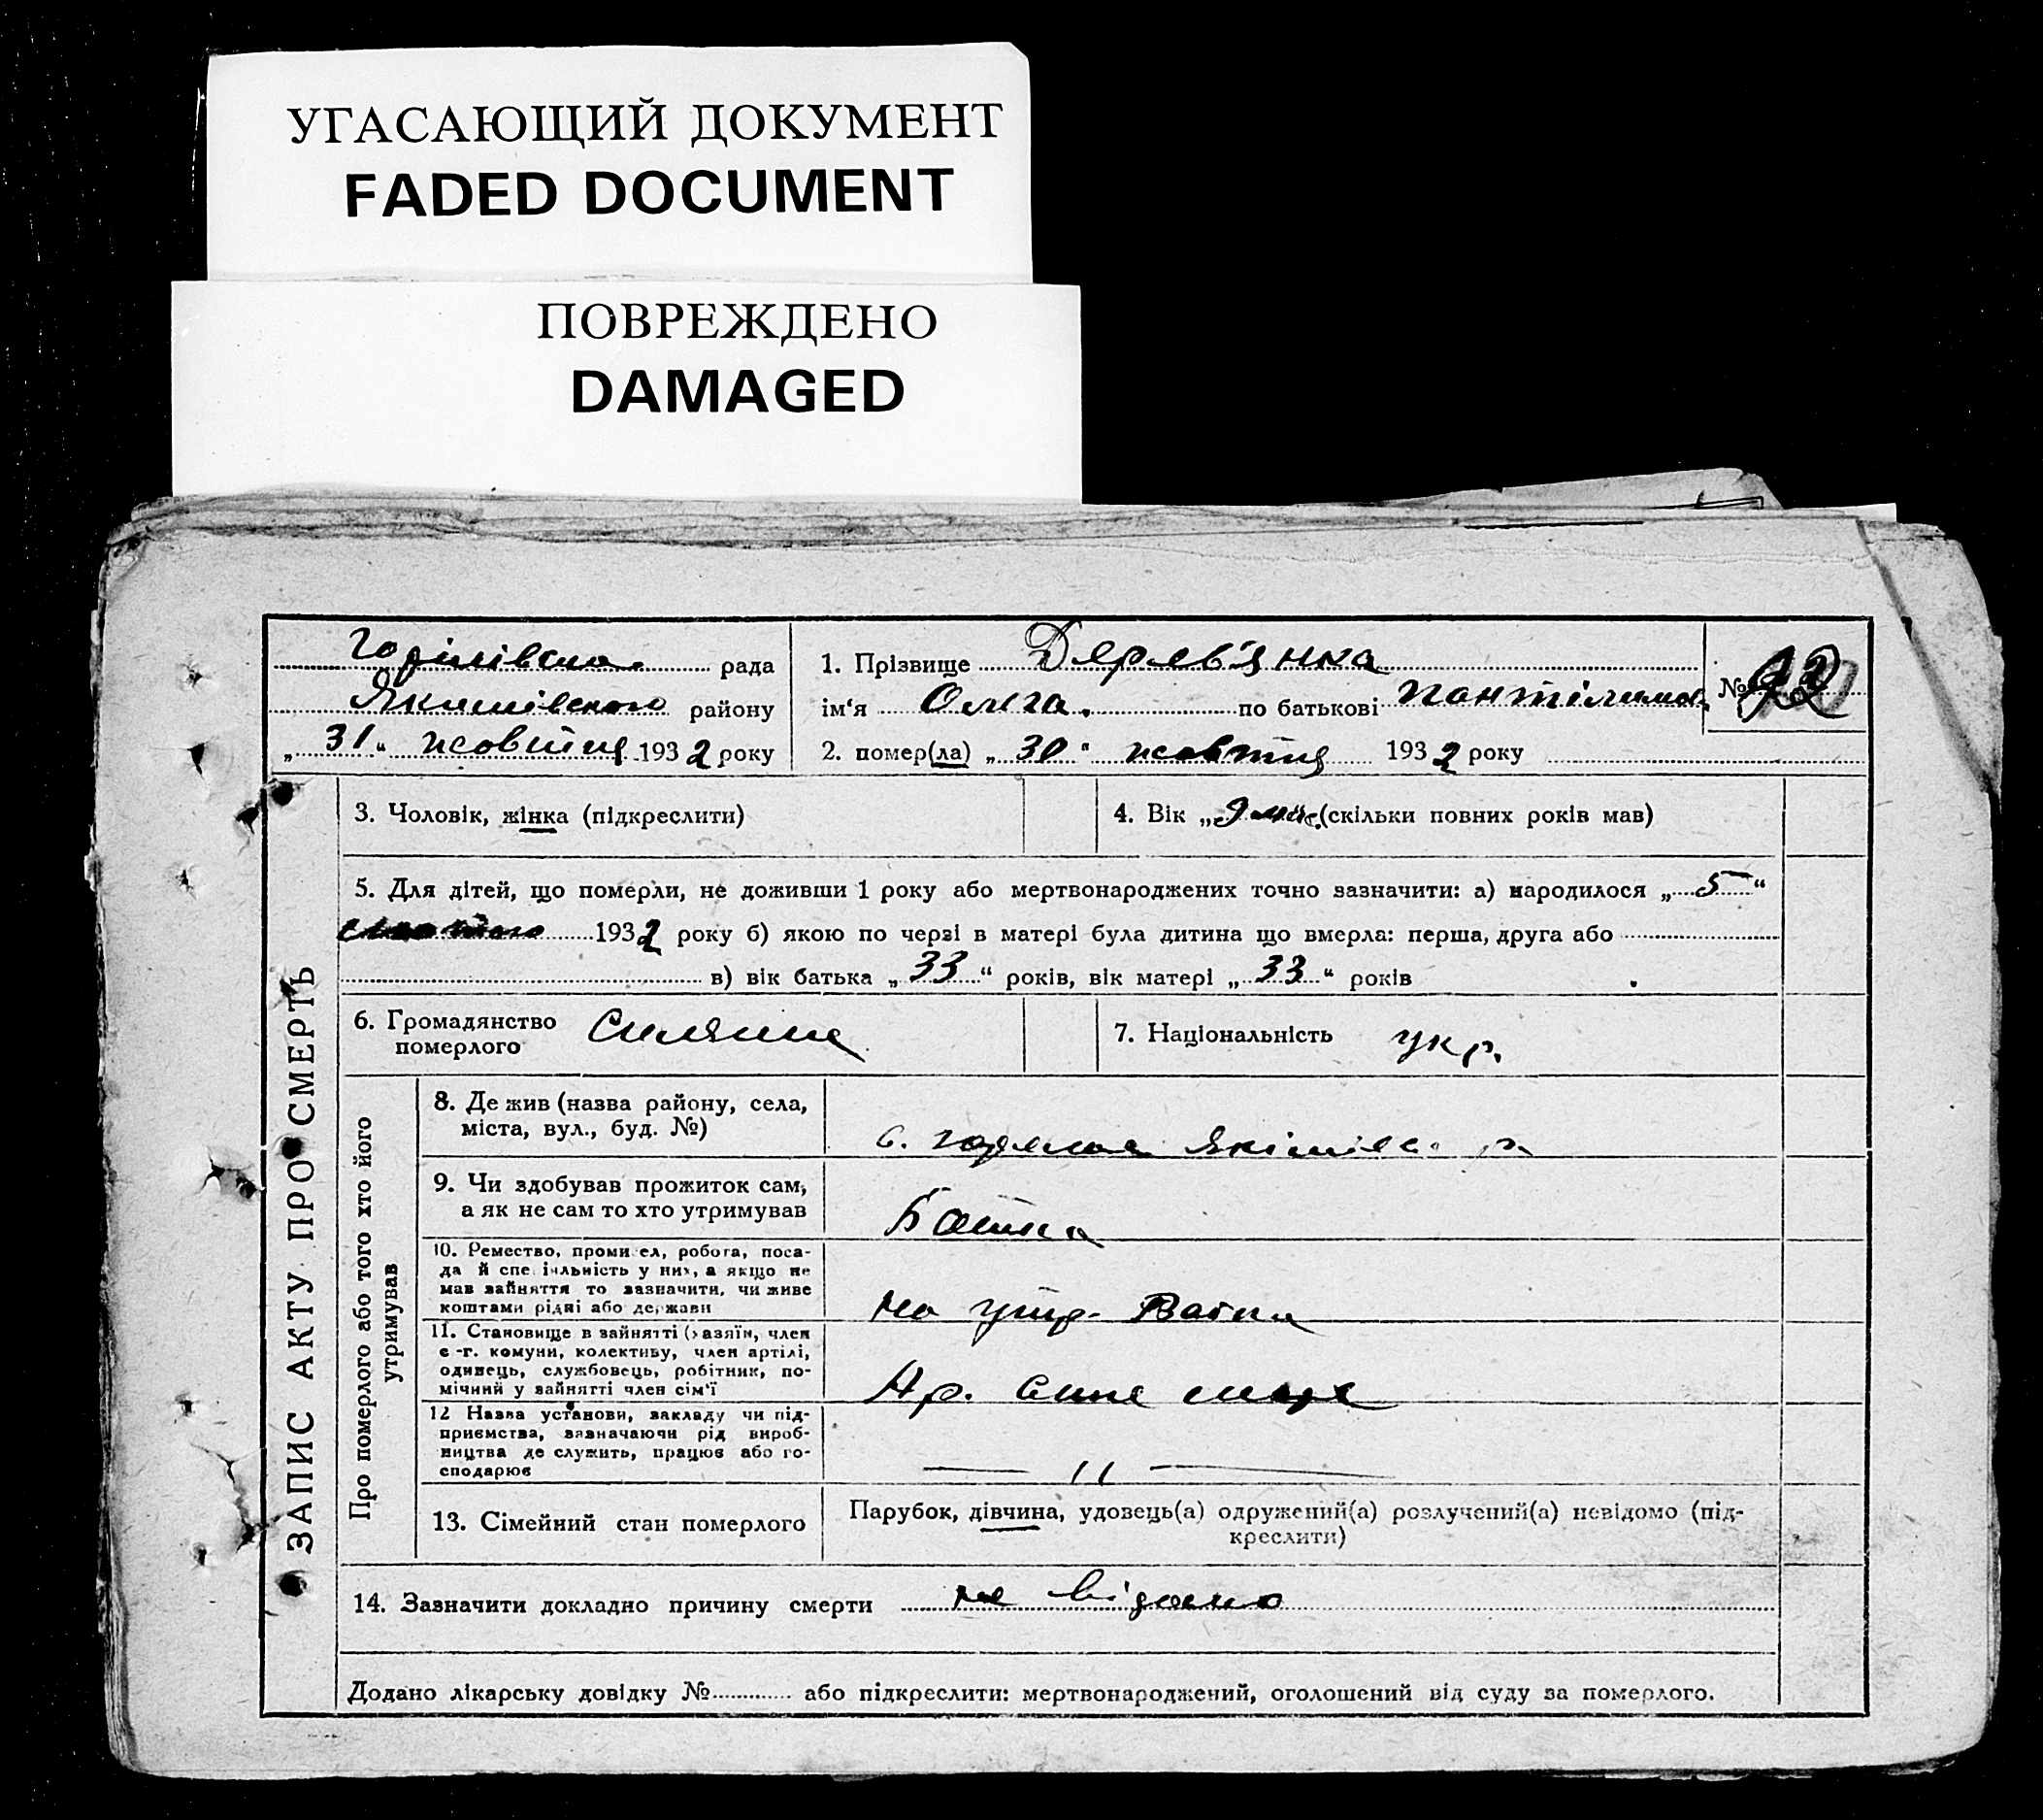 УГАСАЮЩИЙ ДОКУМЕНТ
FADED DOCUMENT
ПОВРЕЖДЕНО
DAMAGED
рада
району
„31“ жовтня 1932 року
1. Прізвище Дерев'янка
ім'я Ольга. по батькові Пантілимов.
2. помер(ла) „30“ жовтня 1932 року
№
ЗАПИС АКТУ ПРО СМЕРТЬ
3. Чоловік, жінка (підкреслити)
4. Вік „9 міс. (скільки повних років мав)
5. Для дітей, що померли, не доживши 1 року або мертвонароджених точно зазначити: а) народилося „5“
лютого 1932 року б) якою по черзі в матері була дитина що вмерла: перша, друга або
в) вік батька „33“ років, вік матері „33“ років
6. Громадянство
померлого
7. Національність укр.
Про померлого або того хто його
утримував
8. Де жив (назва району, села,
міста, вул., буд. №)
с.
9. Чи здобував прожиток сам,
а як не сам то хто утримував
Батька
10. Ремество, промисел, робота, поса-
да й спеціяльність у них, а якщо не
мав зайняття то зазначити, чи живе
коштами рідні або держави
на утр. Батька
11. Становище в зайнятті (хазяїн, член
с.-г. комуни, колективу, член артілі,
одинець, службовець, робітник, по-
мічний у зайнятті член сім'ї
Ар. Сине море
12 Назва установи, закладу чи під-
приємства, зазначаючи рід вироб-
ництва де служить, працює або го-
сподарює
— 11 —
13. Сімейний стан померлого
Парубок, дівчина, удовець(а) одружений(а) розлучений(а) невідомо (під-
креслити)
14. Зазначити докладно причину смерти не відомо
Додано лікарську довідку № або підкреслити: мертвонароджений, оголошений від суду за померлого.